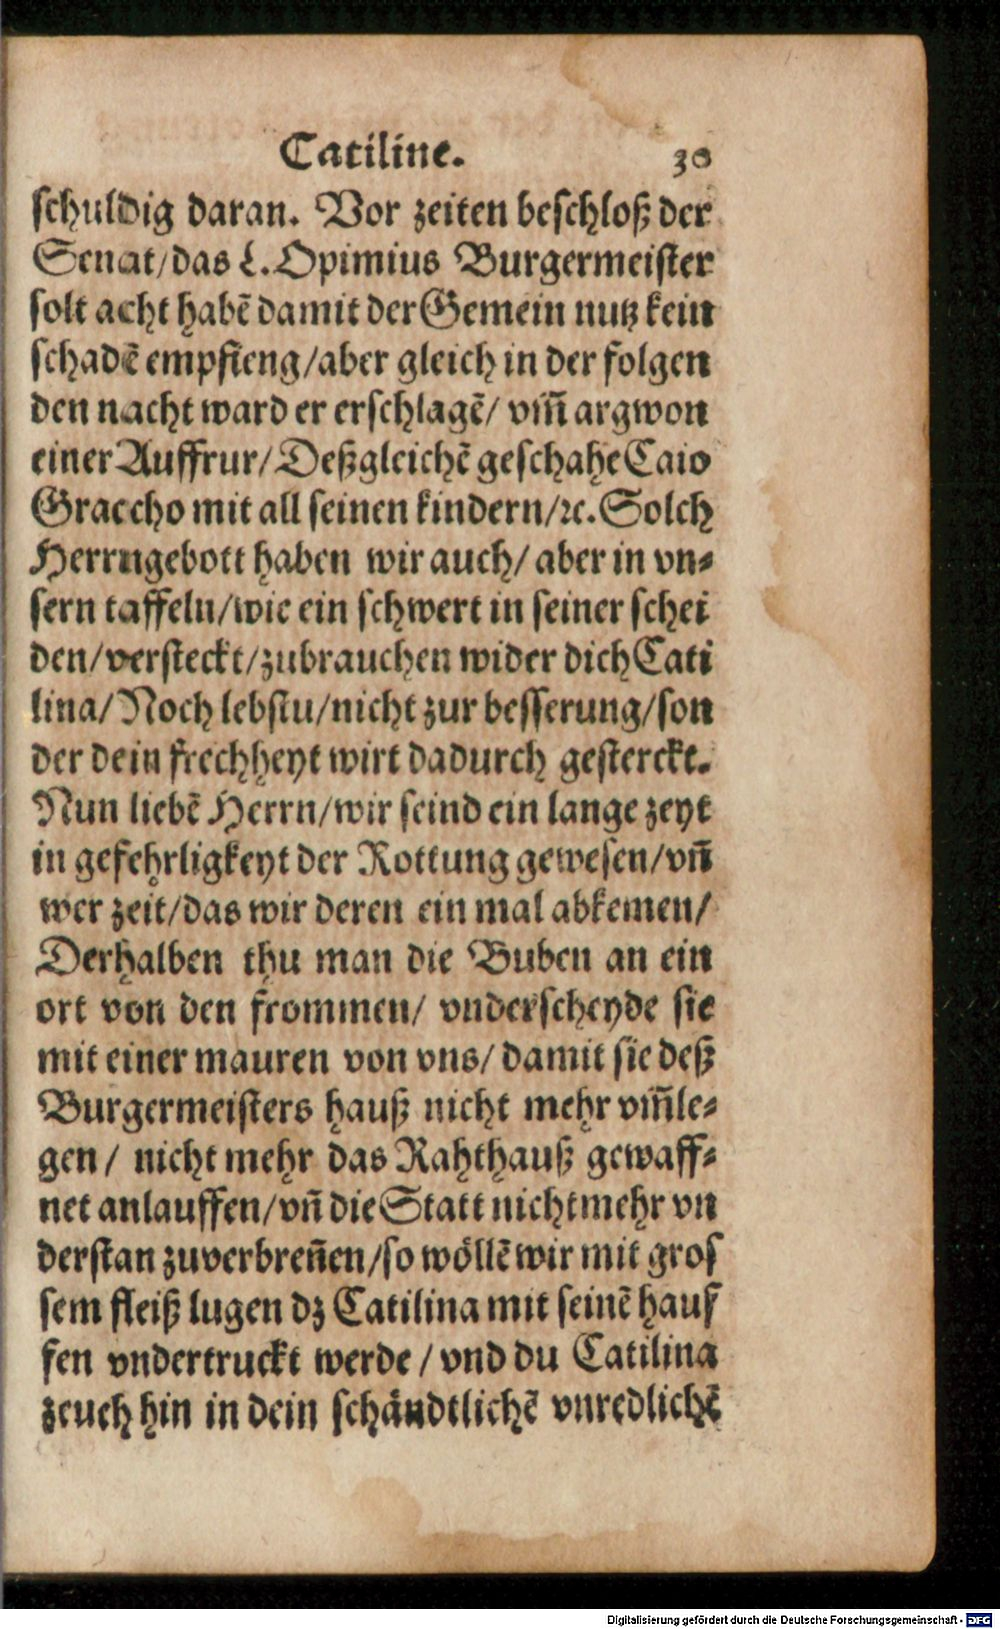 Catiline. 30
schuldig daran. Vor zeiten beschloß der
Senat/das L. Opimius Burgermeister
solt acht habẽ damit der Gemein nutz kein
schadẽ empfieng/aber gleich in der folgen
den nacht ward er erschlagẽ/ vm̃ argwon
einer Auffrur/Deßgleichẽ geschahe Caio
Graccho mit all seinen kindern/ꝛc. Solch
Herrngebott haben wir auch/ aber in vn⸗
sern taffeln/wie ein schwert in seiner schei
den/versteckt/zubrauchen wider dich Cati
lina/Noch lebstu/nicht zur besserung/son
der dein frechheyt wirt dadurch gesterckt.
Nun liebẽ Herrn/wir seind ein lange zeyt
in gefehrligkeyt der Rottung gewesen/vñ
wer zeit/das wir deren ein mal abkemen/
Derhalben thu man die Buben an ein
ort von den frommen/ vnderscheyde sie
mit einer mauren von vns/ damit sie deß
Burgermeisters hauß nicht mehr vm̃le⸗
gen/ nicht mehr das Rahthauß gewaff⸗
net anlauffen/vñ die Statt nicht mehr vn
derstan zuverbreñen/so wöllẽ wir mit gros
sem fleiß lugen dz Catilina mit seinẽ hauf
fen vndertruckt werde/ vnd du Catilina
zeuch hin in dein schändtlichẽ vnredlichẽ
Digitalisierung gefördert durch die Deutsche Forschungsgemeinschaft - DFG